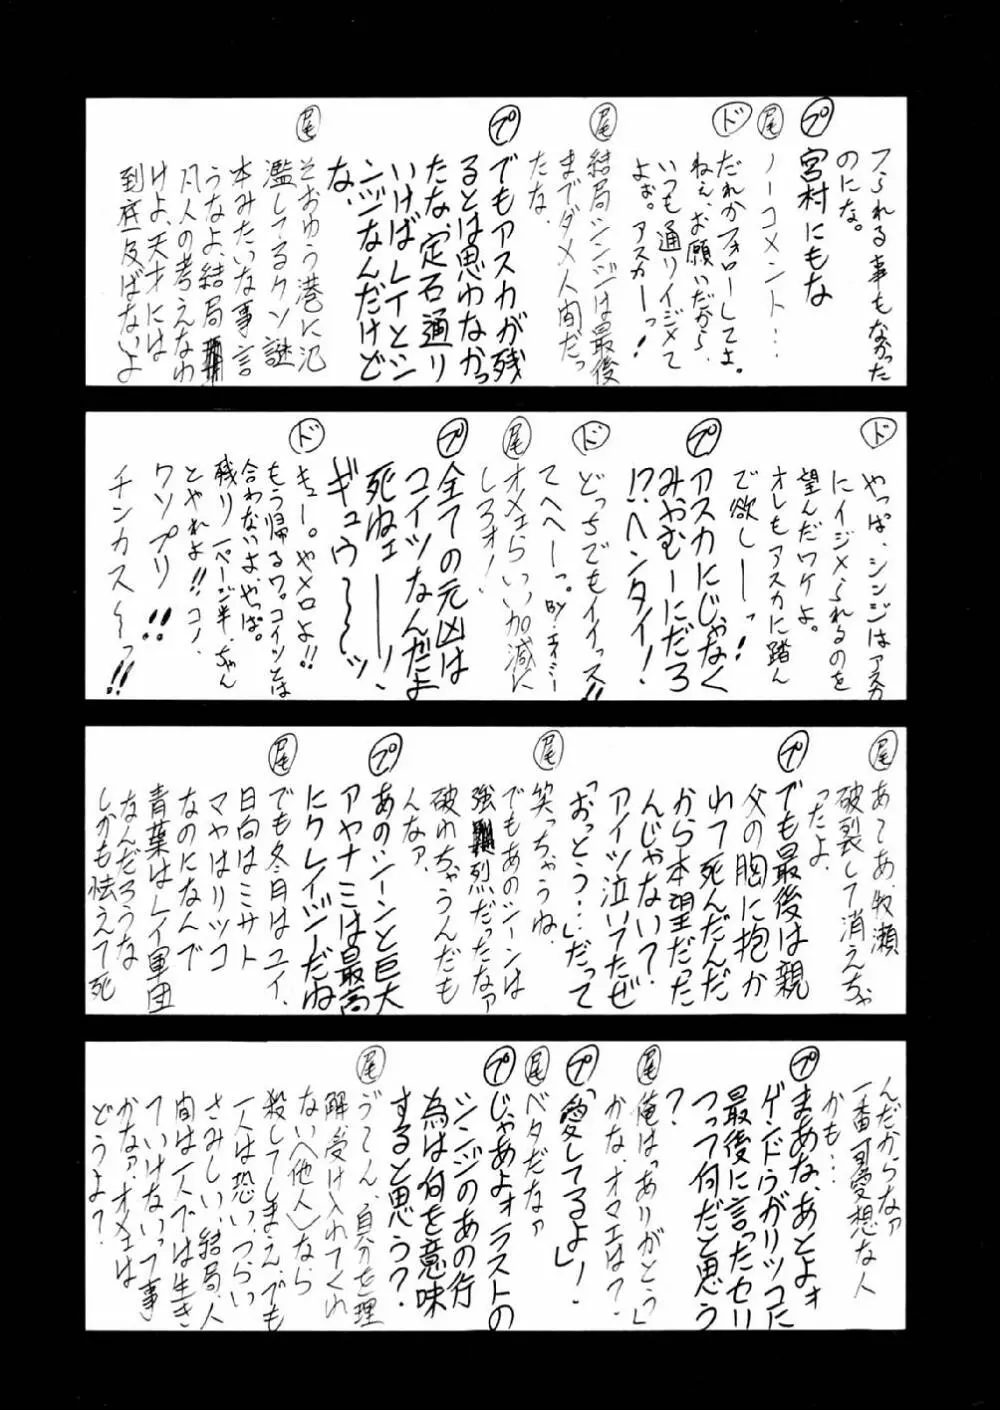 フられる事もなかった
のにな。
プ 宮村にもな
尾 ノーコメント…
ド だれかフォローしてよ。
ねぇ、お願いだから、
いつも通りイジメて
よぉ。アスカーっ!
尾 結局シンジは最後
までダメ人間だっ
たな。
プ でもアスカが残
るとは思わなかっ
たな、定石通り
いけばレイとシ
ンジなんだけど
な、
尾 そおゆう巷に氾
濫してるクソ謎
本みたいな事言
うなよ、結局
凡人の考えなわ
けよ、天才には
到底及ばないよ
ド やっぱ、シンジはアスカ
にイジメられるのを
望んだワケよ。
オレもアスカに踏ん
で欲しーっ!
プ アスカにじゃなく
みやむーにだろ
!?ヘンタイ!
ド どっちでもイイっス!!
てへへーっ。
尾 オメェらいい加減に
しろォ!
プ 全ての元凶は
コイツなんだよ
死ねェーー!
ギュウ〜〜〜ッ
ド キュー。やメロよ!!
もう帰るワ。コイツとは
合わないよ、やっぱ。
残り一ページ半、ちゃん
とやれよ!!コノ、
クソプリ!!
チンカス〜〜っ!!
尾 あてあ、牧瀬
破裂して消えちゃ
ったよ
プ でも最後は親
父の胸に抱か
れて死んだんだ
から本望だった
んじゃない?
アイツ泣いてたぜ
「おっとう…」だって
尾 笑っちゃうね、
でもあのシーンは
強烈だったなァ
破れちゃうんだも
んなァ、
プ あのシーンと巨大
アヤナミは最高
にクレイジーだね
尾 でも冬月はユイ、
日向はミサト
マヤはリツコ
なのになんで
青葉はレイ軍団
なんだろうな
しかも怯えて死
んだからなァ
一番可愛想な人
かも…
プ まあな、あとよォ
ゲンドウがリツコに
最後に言ったセリ
フって何だと思う
?
尾 俺は「ありがとう」
かな、オマエは?
プ 「愛してるよ」!
尾 ベタだなァ
プ じゃあよォラストの
シンジのあの行
為は何を意味
すると思う?
尾 うーてん、自分を理
解、受け入れてくれ
ない〈他人〉なら
殺してしまえ、でも
一人は恐い、つらい
さみしい、結局、人
間は一人では生き
ていけないって事
かなァ、オメェは
どうよ?